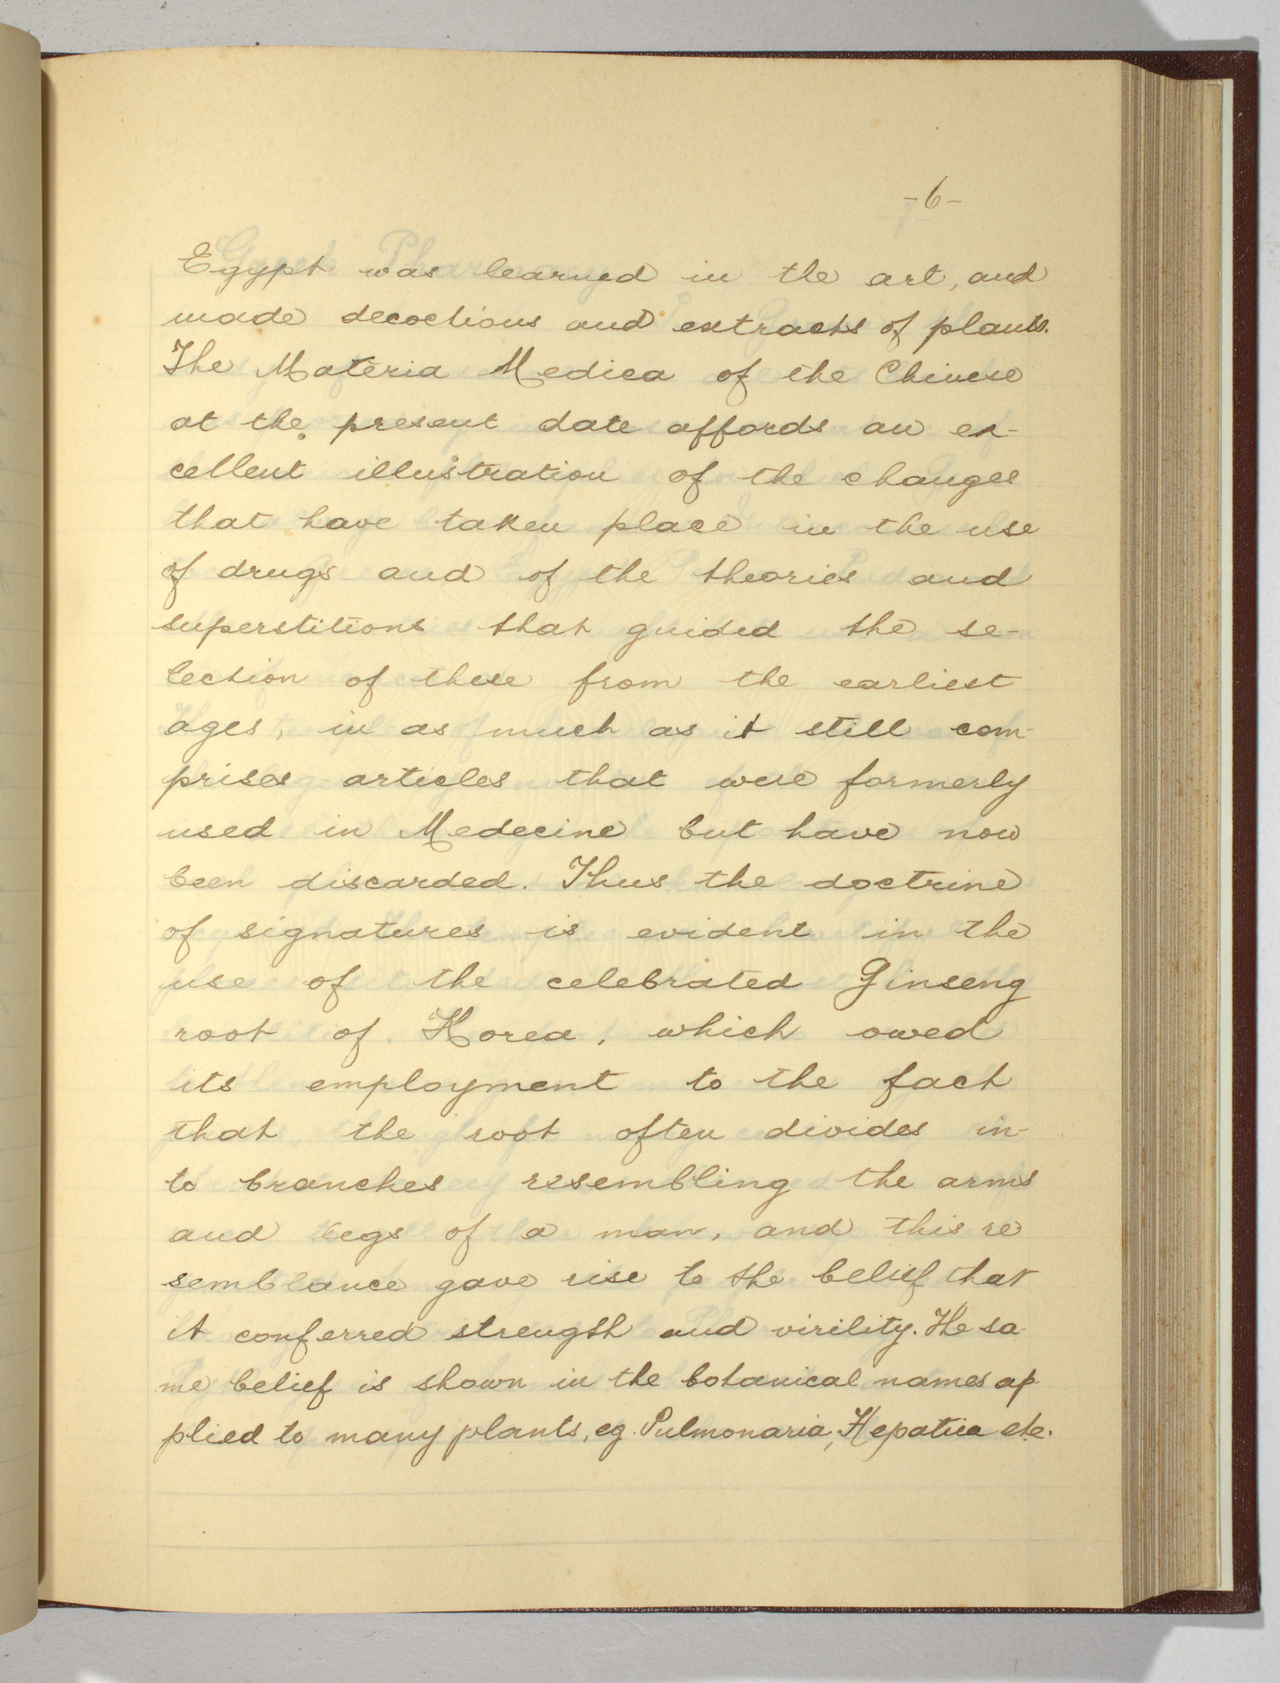 -6-
Egypt was learned in the art, and
made decoctions and extracts of plants.
The Materia Medica of the Chinese
at the present date affords an ex-
cellent illustration of the changes
that have taken place in the use
of drugs and of the theories and
superstitions that guided the se-
lection of these from the earliest
ages, in as much as it still com-
prises articles that were formerly
used in Medecine but have now
been discarded. Thus the doctrine
of signatures is evident in the
use of the celebrated Ginseng
root of Korea, which owed
its employment to the fact
that the root often divides in-
to branches resembling the arms
and legs of a man, and this re
semblance gave rise to the belief that
it conferred strength and virility. The sa
me belief is shown in the botanical names ap
plied to many plants, eg. Pulmonaria, Hepatica etc.